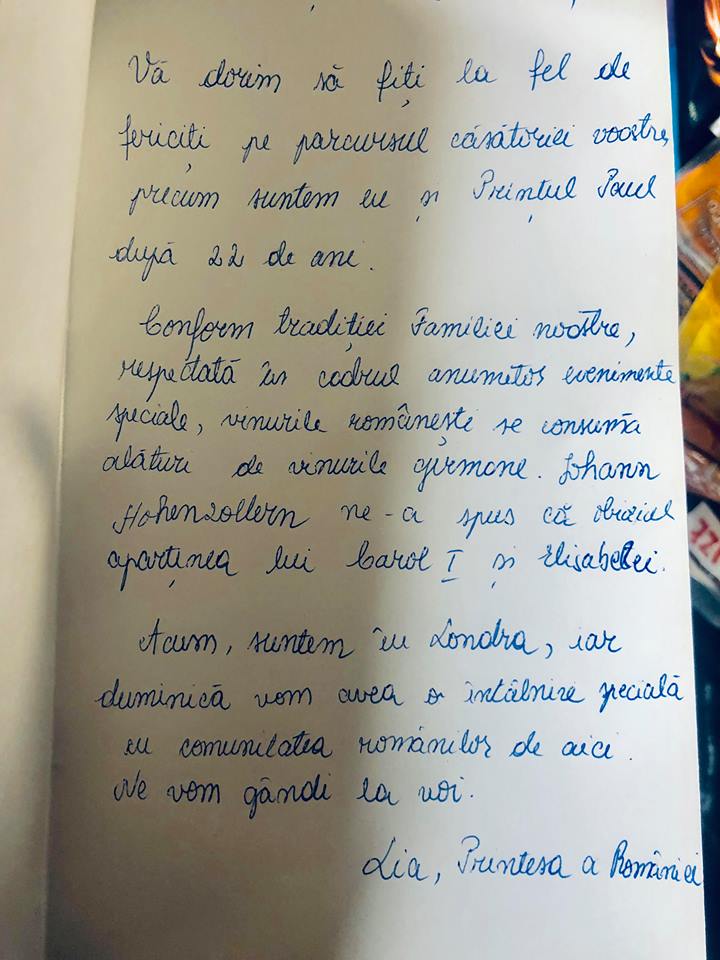 Vă dorim să fiți la fel de
fericiți pe parcursul căsătoriei voastre,
precum suntem eu și Prințul Paul
după 22 de ani.
Conform tradiției Familiei noastre,
respectată în cadrul anumitor evenimente
speciale, vinurile românești se consumă
alături de vinurile germane. Johann
Hohenzollern ne-a spus că obiceiul
aparținea lui Carol I și Elisabetei.
Acum, suntem în Londra, iar
duminică vom avea o întâlnire specială
cu comunitatea românilor de aici.
Ne vom gândi la voi.
Lia, Printesa a României